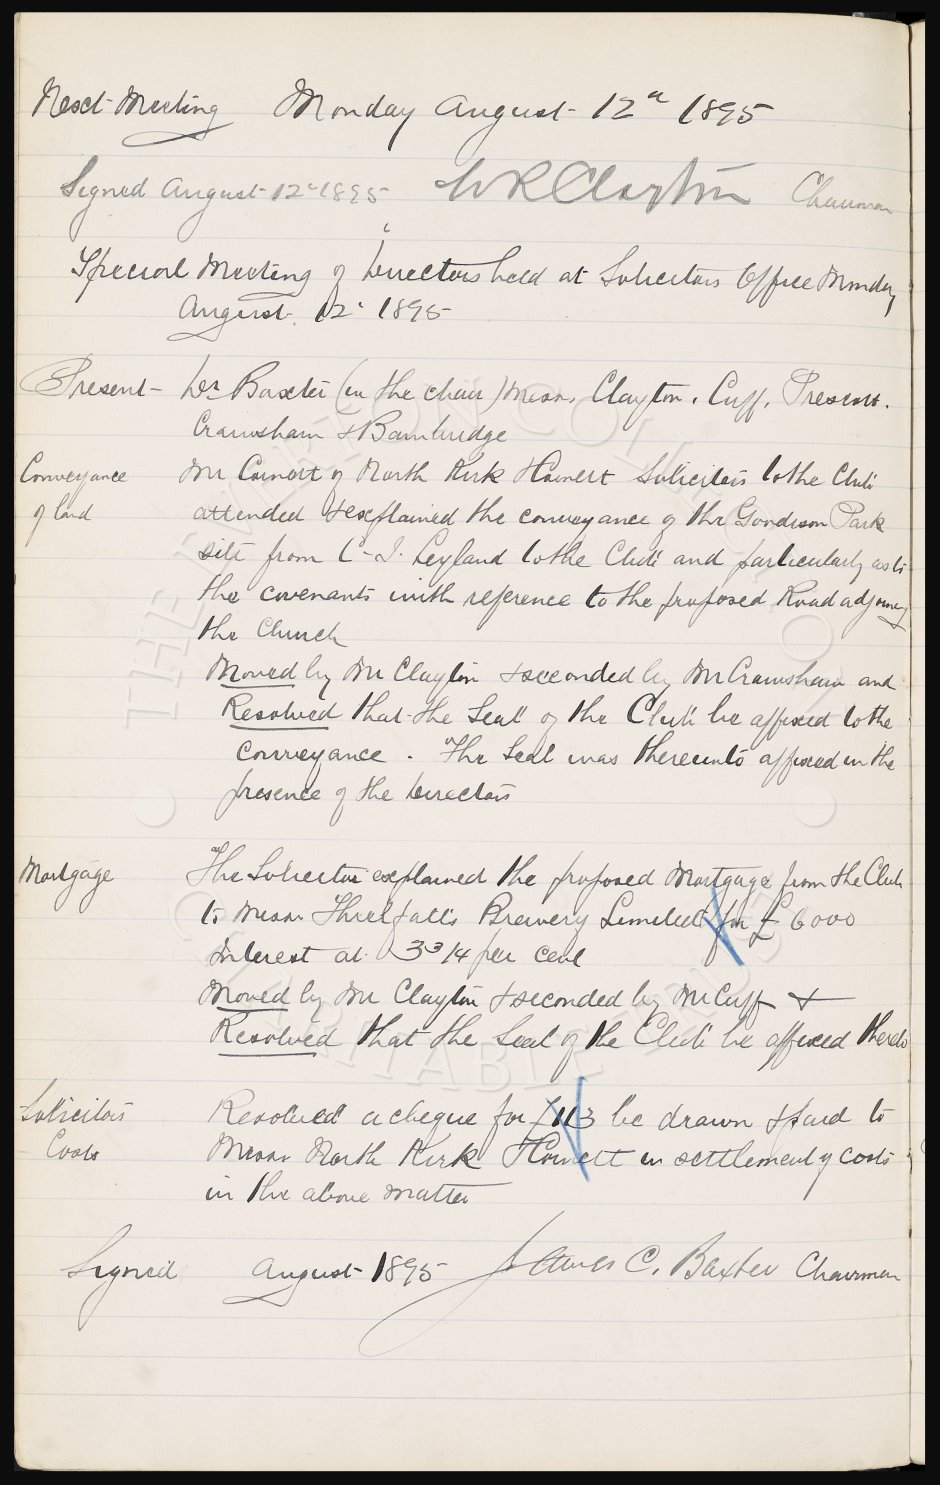 Next Meeting Monday August 12th 1895
Signed August 12th 1895 W R Clayton Chairman
Special Meeting of Directors held at Solicitors Office Monday
August 12th 1895
Present - Dr Baxter (in the chair) Messrs Clayton, Cuff, Prescott,
Crawshaw & Bainbridge
Conveyance of land
Mr of North Kirk & Cornett Solicitors to the Club
attended & explained the conveyance of the Goodison Park
site from C. J. Leyland to the Club and particularly as to
the covenants with reference to the proposed Road adjoining
the Church
Moved by Mr Clayton & seconded by Mr Crawshaw and
Resolved that the Seal of the Club be affixed to the
conveyance. The Seal was thereunto affixed in the
presence of the Directors
Mortgage
The Solicitor explained the proposed Mortgage from the Club
to Messrs Threlfall's Brewery Limited for £6000
Interest at 3 3/4 per cent
Moved by Mr Clayton & seconded by Mr Cuff &
Resolved that the Seal of the Club be affixed thereto
Solicitors Costs
Resolved a cheque for £113 be drawn & paid to
Messrs North Kirk & Cornett in settlement of costs
in the above matter
Signed August 1895 James C. Baxter Chairman
THE EVERTON COLLECTION
CHARITABLE TRUST